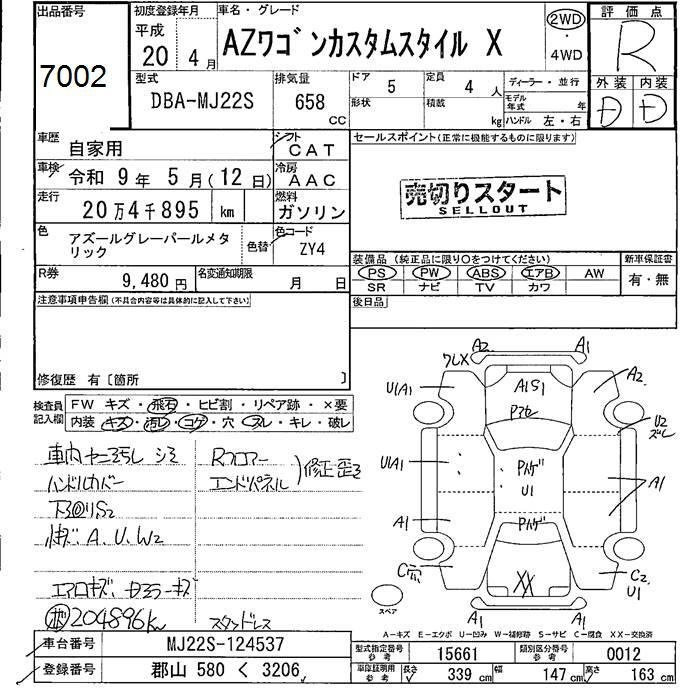 出品番号
7002
初度登録年月
平成
20 4月
車名・グレード
AZワゴンカスタムスタイル X
2WD
・
4WD
評価点
R
型式
DBA-MJ22S
排気量
658
CC
ドア
5
定員
4 人
形状
積載
kg
ディーラー・並行
モデル年式 年
ハンドル 左・右
外装 内装
D D
車歴
自家用
シフト
CAT
車検
令和 9年 5月(12日)
冷房
AAC
走行
20万4千895 km
燃料
ガソリン
色
アズールグレーパールメタリック
色替
色コード
ZY4
R券
9,480円
名変通知期限
月 日
セールスポイント(正常に機能するものに限ります)
売切りスタート
SELLOUT
装備品(純正品に限り○をつけてください)
PS PW ABS エアB AW
SR ナビ TV カワ
新車保証書
有・無
後日品
注意事項申告欄(不具合内容等は具体的に記入して下さい)
修復歴 有〔箇所 〕
検査員記入欄
FW キズ・飛石・ヒビ割・リペア跡・×要
内装 キズ・汚レ・コゲ・穴・スレ・キレ・破レ
ハンドルカバー
A、U、W2
204896km
スタンドレス
Rフロアー
エンドパネル
修正歪ミ
A2
A1
ワレX
U1A1
A1S1
A2
U2
ズレ
U1A1
U1
A1
A1
C穴
XX
C2
U1
A1
A1
スペア
A-キズ E-エクボ U-凹み W-補修跡 S-サビ C-腐食 XX-交換済
車台番号
MJ22S-124537
登録番号
郡山 580 く 3206
型式指定番号
参考
15661
類別区分番号
参考
0012
車庫証明用
参考
長さ
339 cm
幅
147 cm
高さ
163 cm